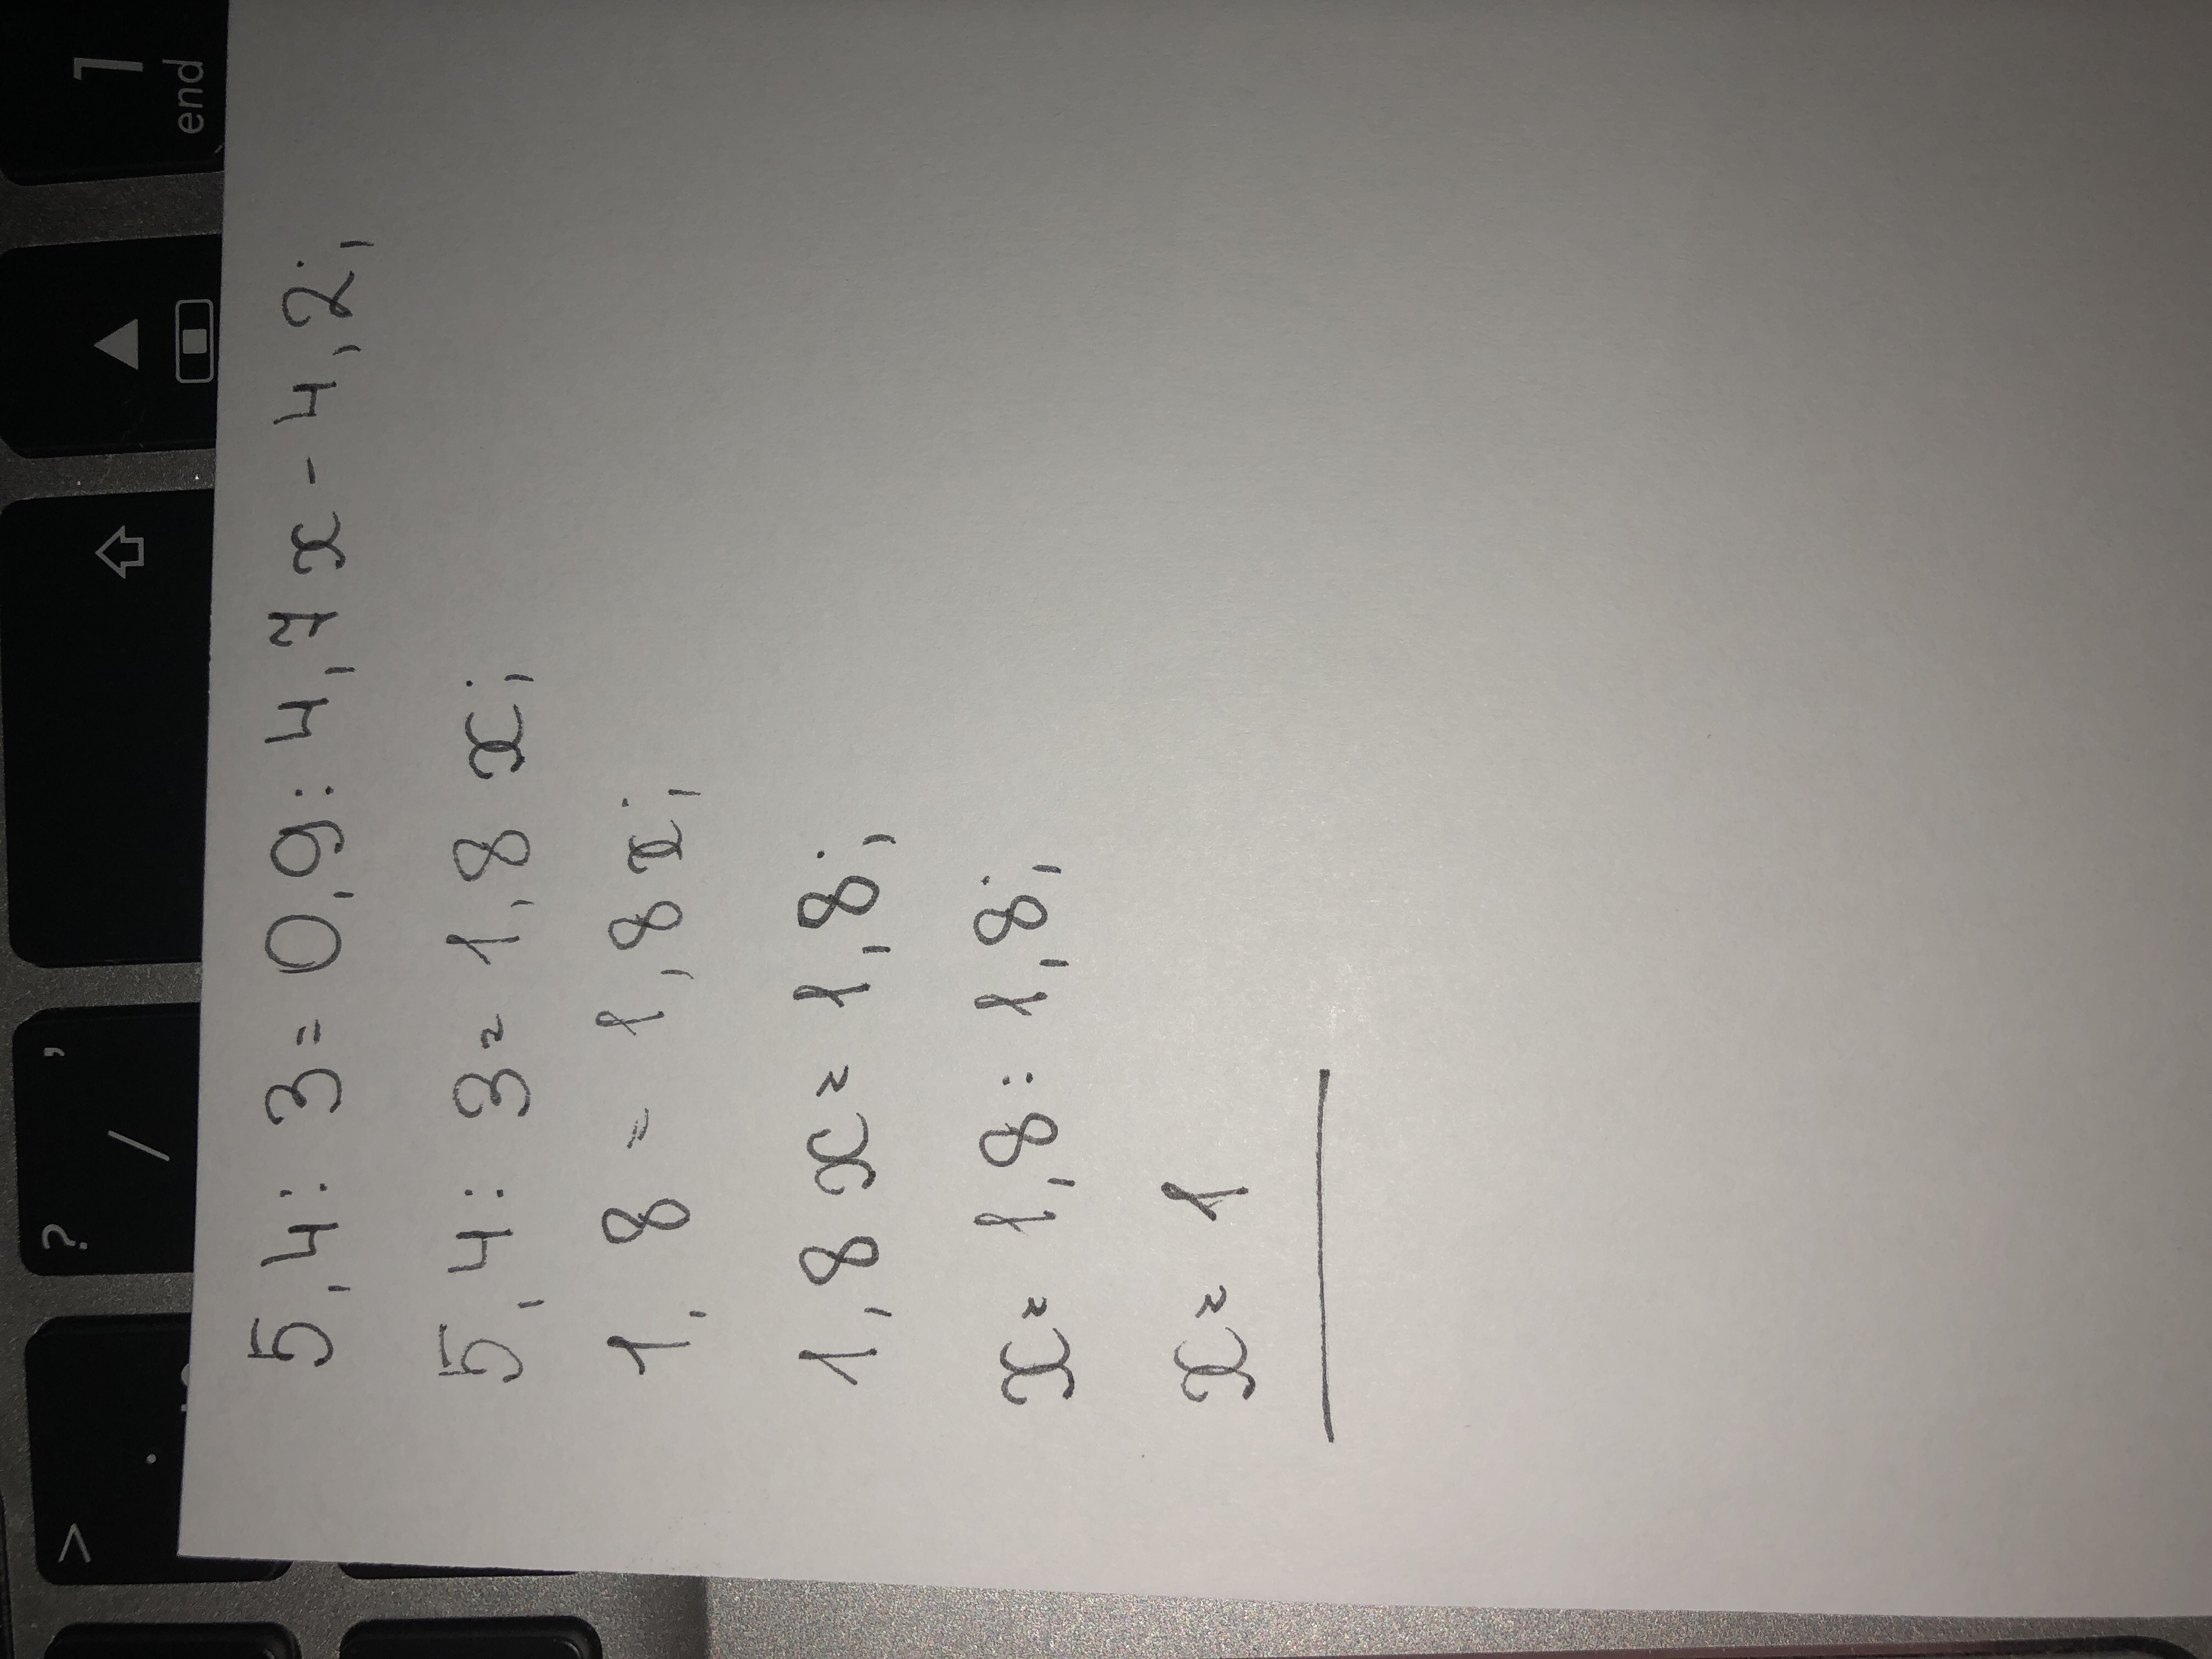 5,4: 3= 0,9: 4,7x-4,2;
5,4: 3= 1,8x;
1,8 = 1,8x;
1,8x= 1,8;
x= 1,8: 1,8;
x= 1
1
end
?
/
>
.
,